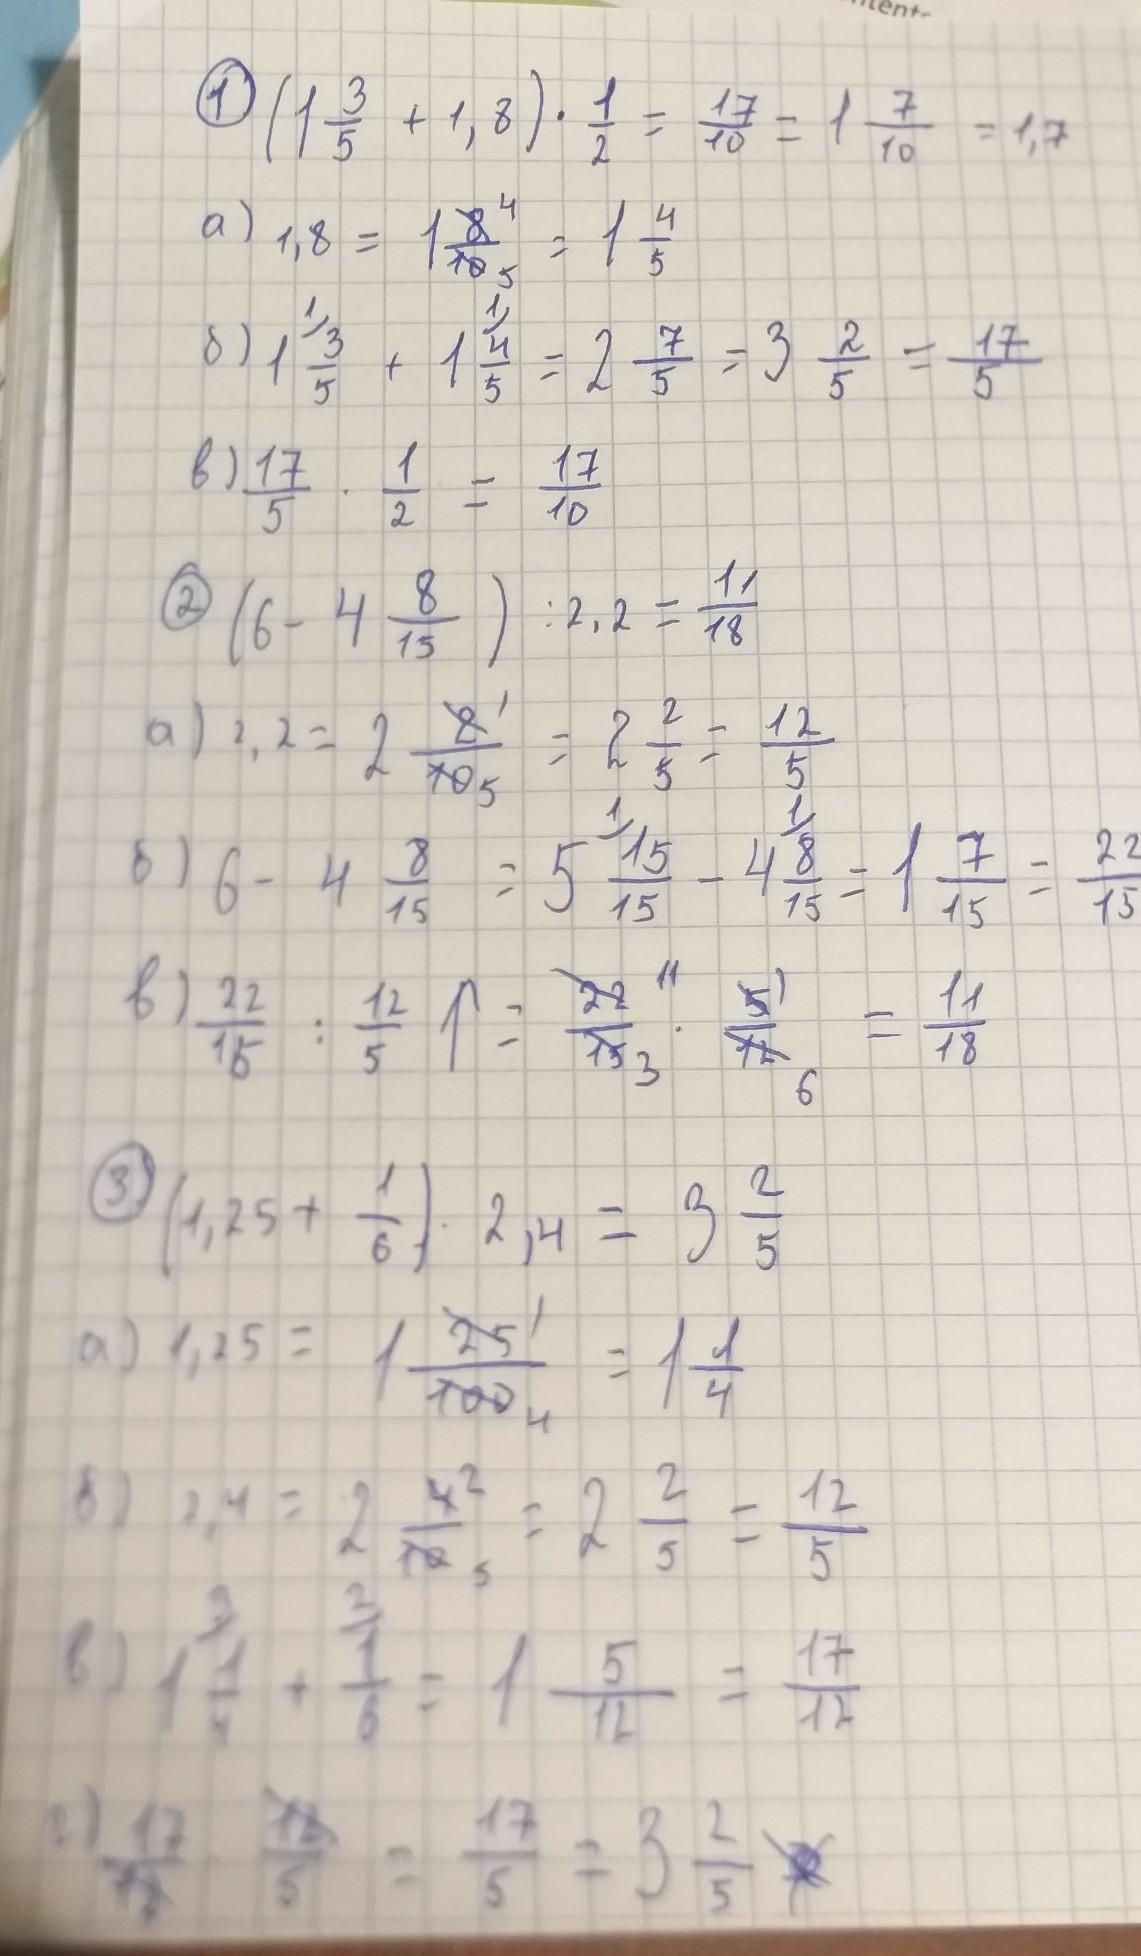 ntent-
① (1 3/5 + 1,8) · 1/2 = 17/10 = 1 7/10 = 1,7
а) 1,8 = 1 8⁴/10₅ = 1 4/5
б) 1 3¹⁾/5 + 1 4¹⁾/5 = 2 7/5 = 3 2/5 = 17/5
в) 17/5 · 1/2 = 17/10
② (6 - 4 8/15) : 2,2 = 11/18
а) 2,2 = 2 2¹/10₅ = 2 2/5 = 12/5
б) 6 - 4 8/15 = 5 15¹⁾/15 - 4 8¹⁾/15 = 1 7/15 = 22/15
в) 22/15 : 12/5 ↑ = 22¹¹/15₃ · 5¹/12₆ = 11/18
③ (1,25 + 1/6) · 2,4 = 3 2/5
а) 1,25 = 1 25¹/100₄ = 1 1/4
б) 2,4 = 2 4²/10₅ = 2 2/5 = 12/5
в) 1 1³⁾/4 + 1²⁾/6 = 1 5/12 = 17/12
г) 17/12 · 12/5 = 17/5 = 3 2/5